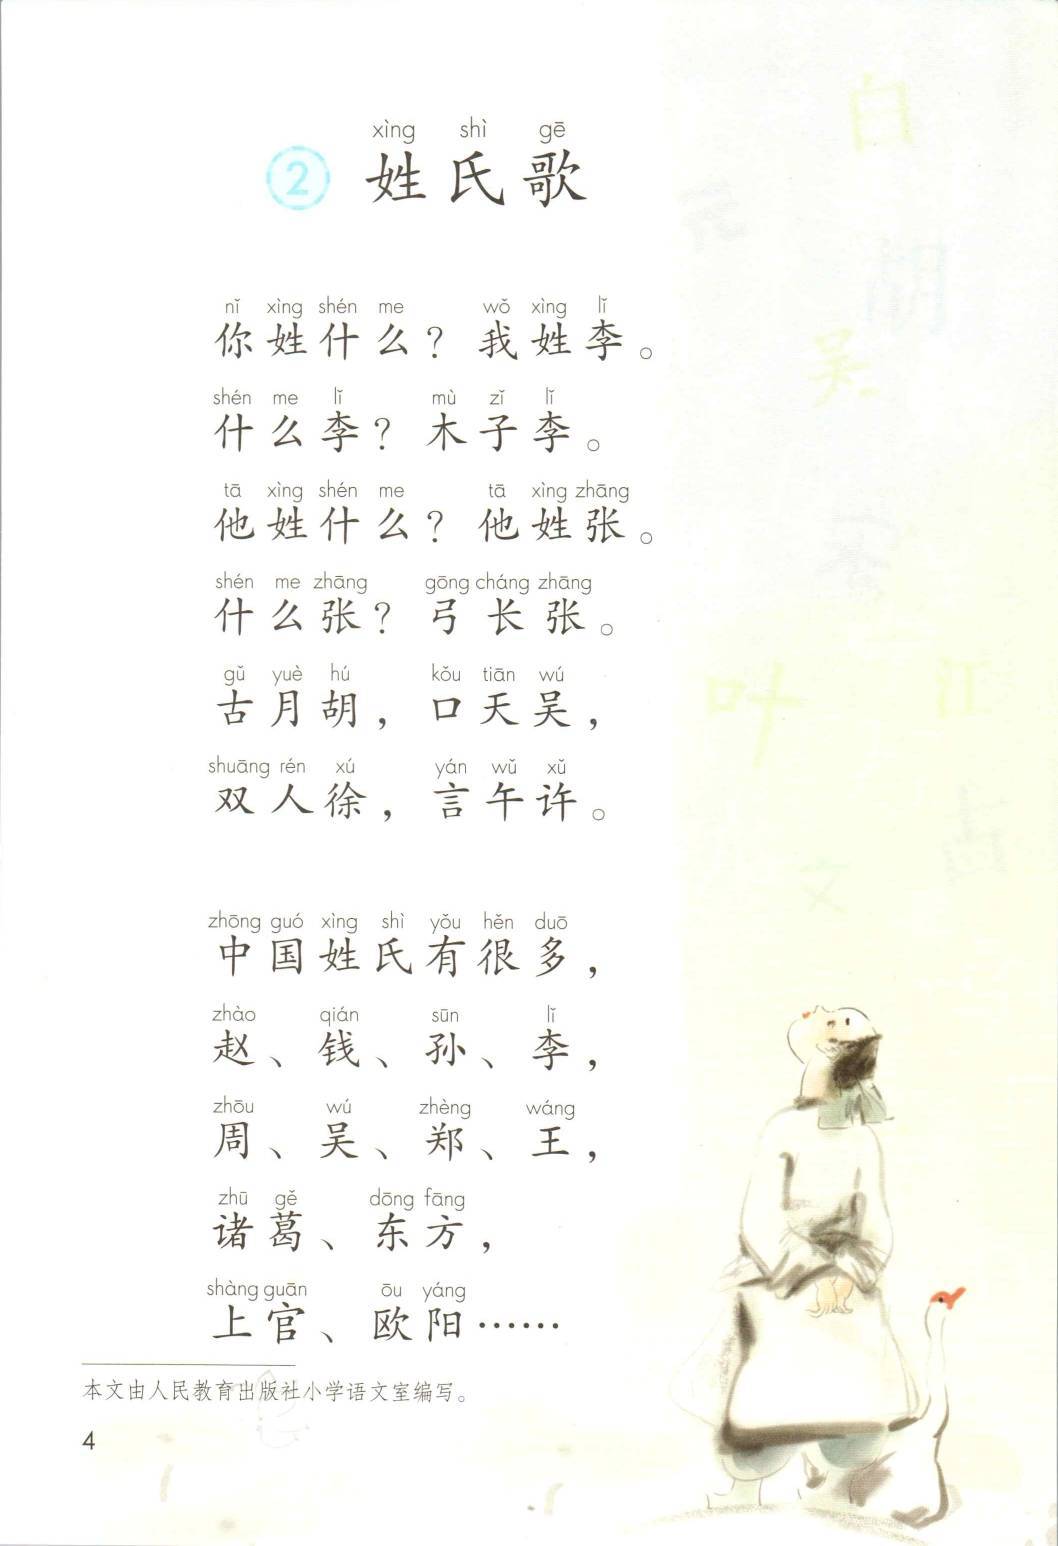 xìng shì gē
2 姓氏歌
nǐ xìng shén me wǒ xìng lǐ
你姓什么？我姓李。
shén me lǐ mù zǐ lǐ
什么李？木子李。
tā xìng shén me tā xìng zhāng
他姓什么？他姓张。
shén me zhāng gōng cháng zhāng
什么张？弓长张。
gǔ yuè hú kǒu tiān wú
古月胡，口天吴，
shuāng rén xú yán wǔ xǔ
双人徐，言午许。
zhōng guó xìng shì yǒu hěn duō
中国姓氏有很多，
zhào qián sūn lǐ
赵、钱、孙、李，
zhōu wú zhèng wáng
周、吴、郑、王，
zhū gě dōng fāng
诸葛、东方，
shàng guān ōu yáng
上官、欧阳……
本文由人民教育出版社小学语文室编写。
4
白
胡
吴
叶
江
文